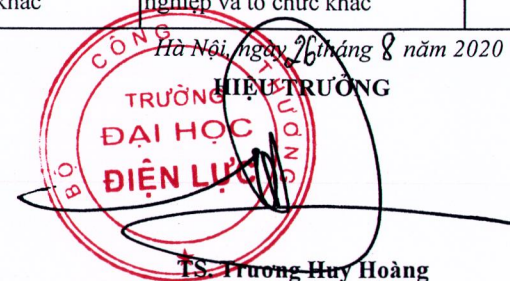 khác nghiệp và tổ chức khác
Hà Nội, ngày 26 tháng 8 năm 2020
HIỆU TRƯỞNG
BỘ CÔNG THƯƠNG
TRƯỜNG
ĐẠI HỌC
ĐIỆN LỰC
TS. Trương Huy Hoàng